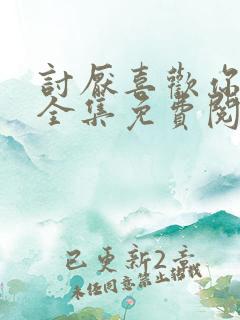 討厭喜歡你
全集免費閱
已更新2章
未經同意禁止轉載